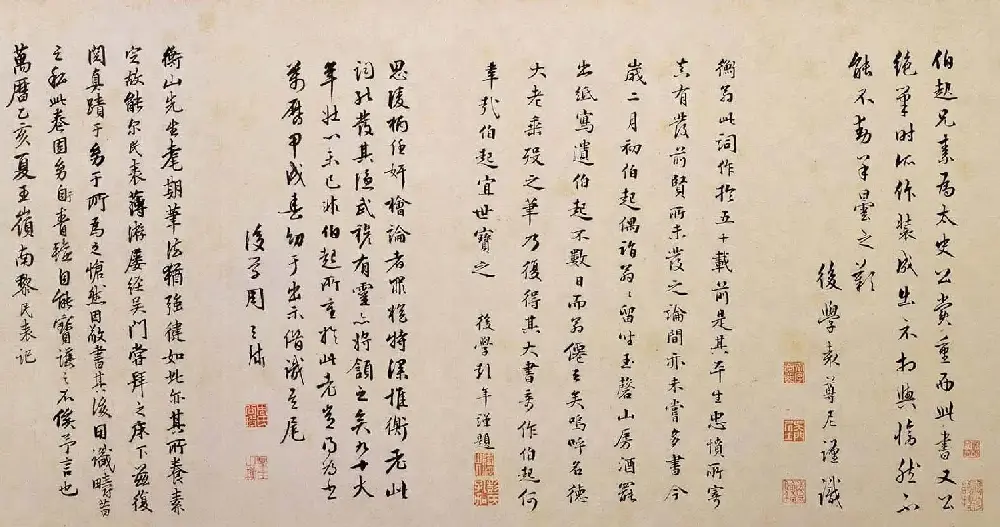 伯起兄素為太史公賞重而此書又公
絕筆時所作裝成出示相與愴然不
能不動羊曇之歎
後學袁尊尼謹識
衡翁此詞作於五十載前是其平生忠憤所寄
真有發前賢所未發之論間亦未嘗多書今
歲二月初伯起偶詣翁翁留坐玉磬山房酒罷
出紙寫遺伯起不數日而翁僊去矣嗚呼名德
大老垂歿之筆乃復得其大書奇作伯起何
幸哉伯起宜世寶之 後學彭年謹題
思陵柄任奸檜論者罪檜特深惟衡老此
詞能發其隱武穆有靈亦將頷之矣九十大
年壯心未已非伯起所重於此老豈得為之
萬曆甲戌春幼于出示偕識之尾
後學周天球
衡山先生耄期筆法猶強健如此亦其所養素
定故能尔民表薄游屢經吳門嘗拜之床下茲復
閱真蹟于幼于所為之愴然因敬書其後用識疇昔
之私此卷固自能寶護之不俟予言也
萬曆乙亥夏五嶺南黎民表記